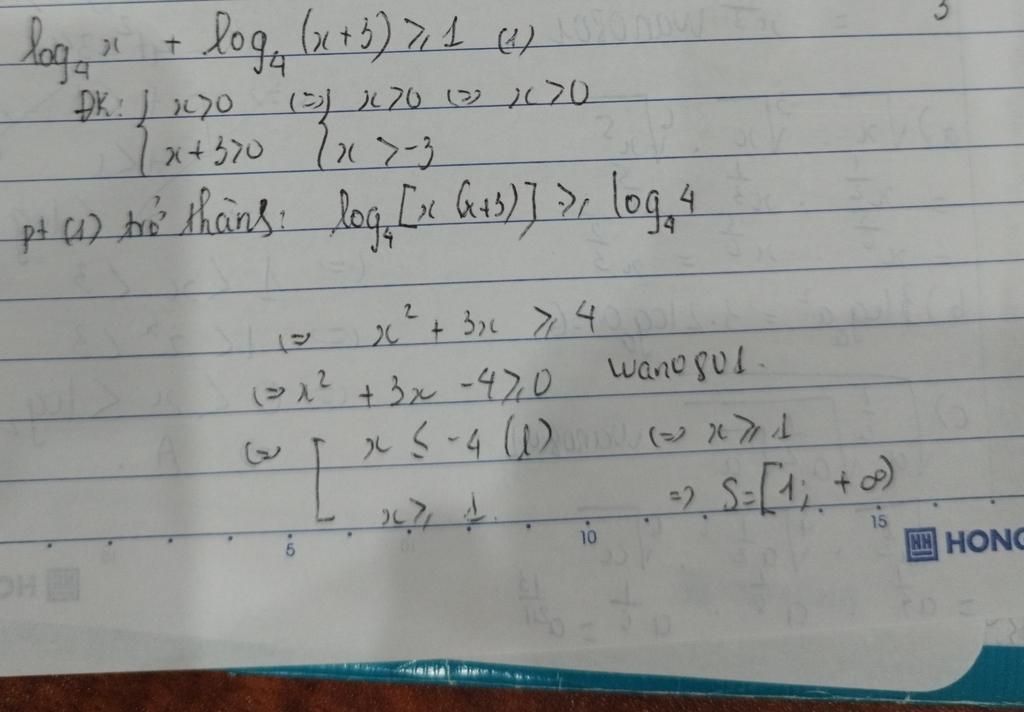 log₄ x + log₄ (x+3) ≥ 1 (1)
ĐK: { x>0 <=> { x>0 <=> x>0
x+3>0 x >-3
pt (1) trở thành: log₄ [x (x+3)] ≥ log₄ 4
<=> x² + 3x ≥ 4
<=> x² + 3x -4 ≥ 0 wano801.
<=> [ x ≤ -4 (l) <=> x ≥ 1
x ≥ 1 => S=[1; +∞)
5 10 15
HONG